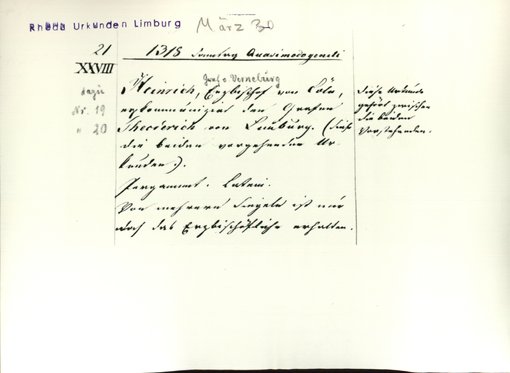 Rheda Urkunden Limburg
März 30
21
1318 Sonntag Quasimodogeniti
XXVIII
Graf v Verneburg
Heinrich, Erzbischof von Cöln,
dazu
Nr. 19
" 20
exkommunizirt den Grafen
Theoderich von Limburg. (siehe
die beiden vorgehenden Ur-
kunden.).
Pergament. Latein.
Von mehrern Siegeln ist nur
noch das Erzbischöfliche erhalten.
diese Urkunde
gehört zwischen
die beiden
vorstehenden.